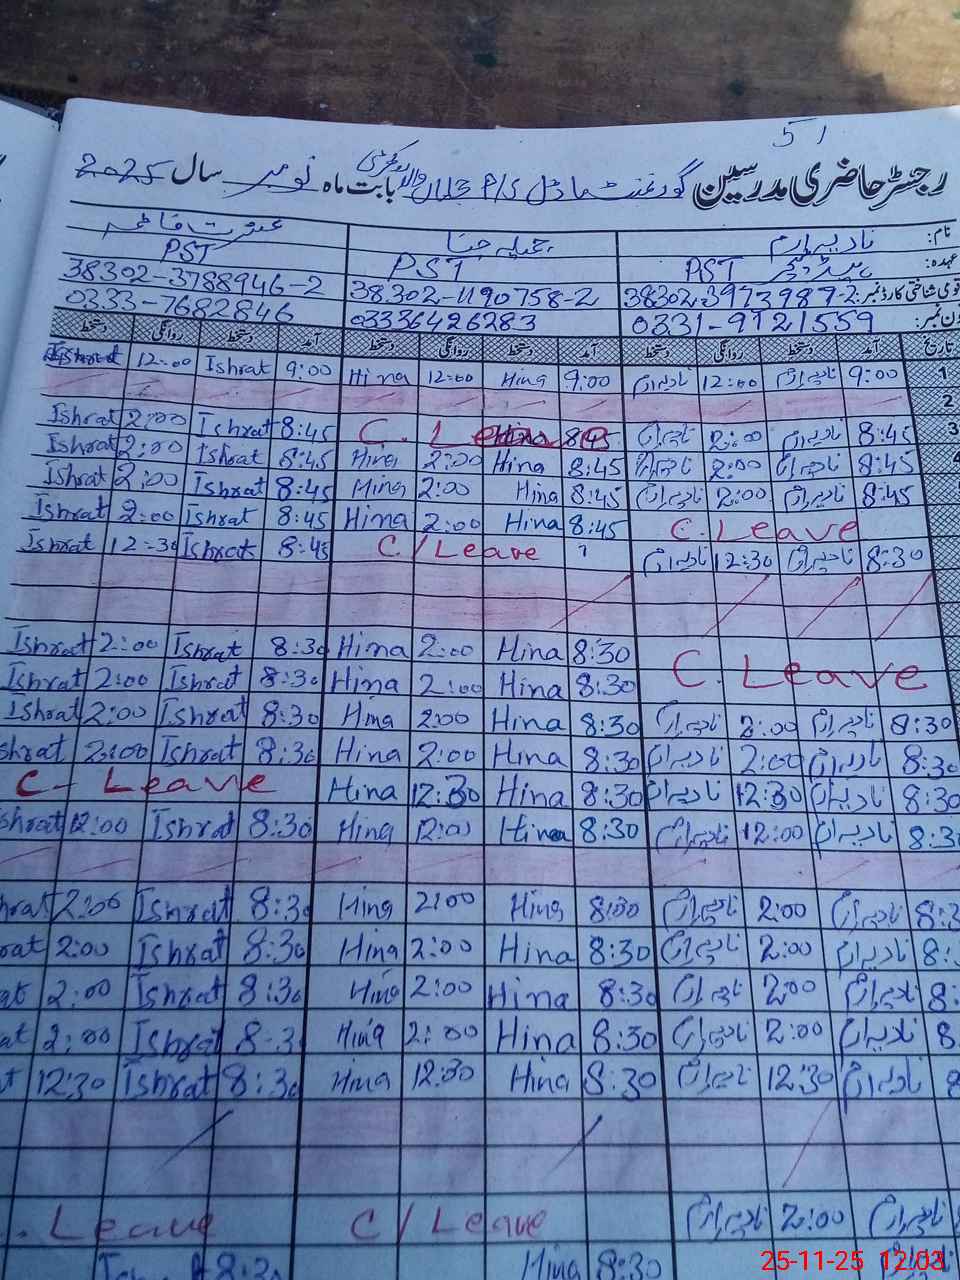 51
رجسٹر حاضری مدرسین گورنمنٹ ماڈل P/S بابت ماہ نومبر سال 2025
نام: نادیہ ارم جمیلہ حنا عشرت فاطمہ
عہدہ: ہیڈ ٹیچر PST PST PST
قومی شناختی کارڈ نمبر: 38302-3973987-2 38302-1190758-2 38302-3788946-2
فون نمبر: 0331-9721559 03336426283 0333-7682846
تاریخ آمد دستخط روانگی دستخط آمد دستخط روانگی دستخط آمد دستخط روانگی دستخط
1 9:00 نادیہ ارم 12:00 نادیہ ارم 9:00 Hina 12:00 Hina 9:00 Ishrat 12:00 Ishrat
2
3 8:45 نادیہ ارم 2:00 نادیہ ارم C. Leave 8:45 Ishrat 2:00 Ishrat
4 8:45 نادیہ ارم 2:00 نادیہ ارم 8:45 Hina 2:00 Hina 8:45 Ishrat 2:00 Ishrat
8:45 نادیہ ارم 2:00 نادیہ ارم 8:45 Hina 2:00 Hina 8:45 Ishrat 2:00 Ishrat
C. Leave 8:45 Hina 2:00 Hina 8:45 Ishrat 2:00 Ishrat
8:30 نادیہ ارم 12:30 نادیہ ارم C/Leave 8:45 Ishrat 12:30 Ishrat
C. Leave 8:30 Hina 2:00 Hina 8:30 Ishrat 2:00 Ishrat
8:30 Hina 2:00 Hina 8:30 Ishrat 2:00 Ishrat
8:30 نادیہ ارم 2:00 نادیہ ارم 8:30 Hina 2:00 Hina 8:30 Ishrat 2:00 Ishrat
8:30 نادیہ ارم 2:00 نادیہ ارم 8:30 Hina 2:00 Hina 8:30 Ishrat 2:00 shrat
8:30 نادیہ ارم 12:30 نادیہ ارم 8:30 Hina 12:30 Hina C- Leave
8:3 نادیہ ارم 12:00 نادیہ ارم 8:30 Hina 12:00 Hina 8:30 Ishrat 12:00 shrat
8:3 نادیہ ارم 2:00 نادیہ ارم 8:30 Hina 2:00 Hina 8:30 Ishrat 2:00 hrat
8: نادیہ ارم 2:00 نادیہ ارم 8:30 Hina 2:00 Hina 8:30 Ishrat 2:00 rat
8: نادیہ ارم 2:00 نادیہ ارم 8:30 Hina 2:00 Hina 8:30 Ishrat 2:00 at
8 نادیہ ارم 2:00 نادیہ ارم 8:30 Hina 2:00 Hina 8:3 Ishrat 2:00 at
نادیہ ارم 12:30 نادیہ ارم 8:30 Hina 12:30 Hina 8:30 Ishrat 12:30 t
نادیہ ارم 2:00 نادیہ ارم C/Leave . Leave
8:30 Hina 8:30
25-11-25 12:03